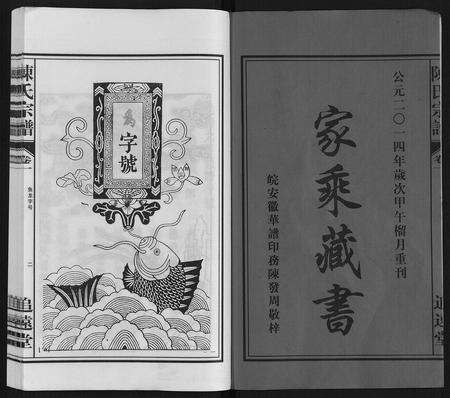 陳氏宗譜
卷
追遠堂
公元二〇一四年歲次甲午榴月重刊
家乘藏書
皖安徽華譜印務陳發周敬梓
字號
陳氏宗譜
卷一
魚龍字号
二
追遠堂